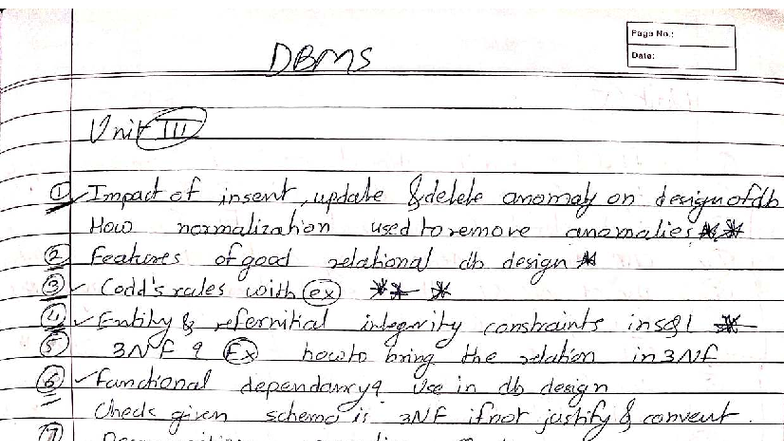 Page No.:
Date:
DBMS
Unit III
① Impact of insert, update & delete anomaly on design of db
How normalization used to remove anomalies ** 
② Features of good relational db design *
③ Codd's rules with ex ** *
④ Entity & refernitial integrity constraints in sql *
⑤ 3NF & Ex how to bring the relation in 3NF
⑥ Functional dependancy & use in db design
Check given schema is 3NF if not justify & convert.
⑦